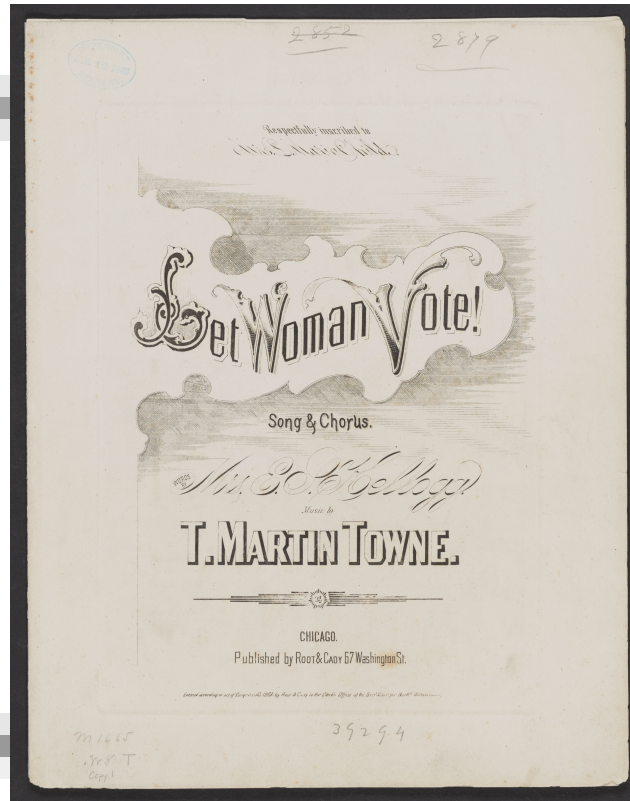 2852
2879
Respectfully inscribed to
Let Woman Vote!
Song & Chorus.
WORDS by
Mrs. E. Kellogg.
Music by
T. MARTIN TOWNE.
2
CHICAGO.
Published by ROOT & CADY 67 Washington St.
Entered according to act of Congress by Root & Cady in the Clerk's Office of the Dist. Court for
39294
M1665
.W8 T
Copy 1